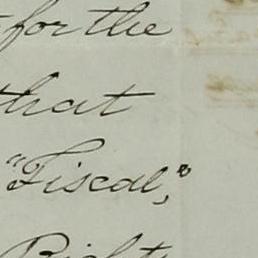 for the
that
"Fiscal,"
Rights